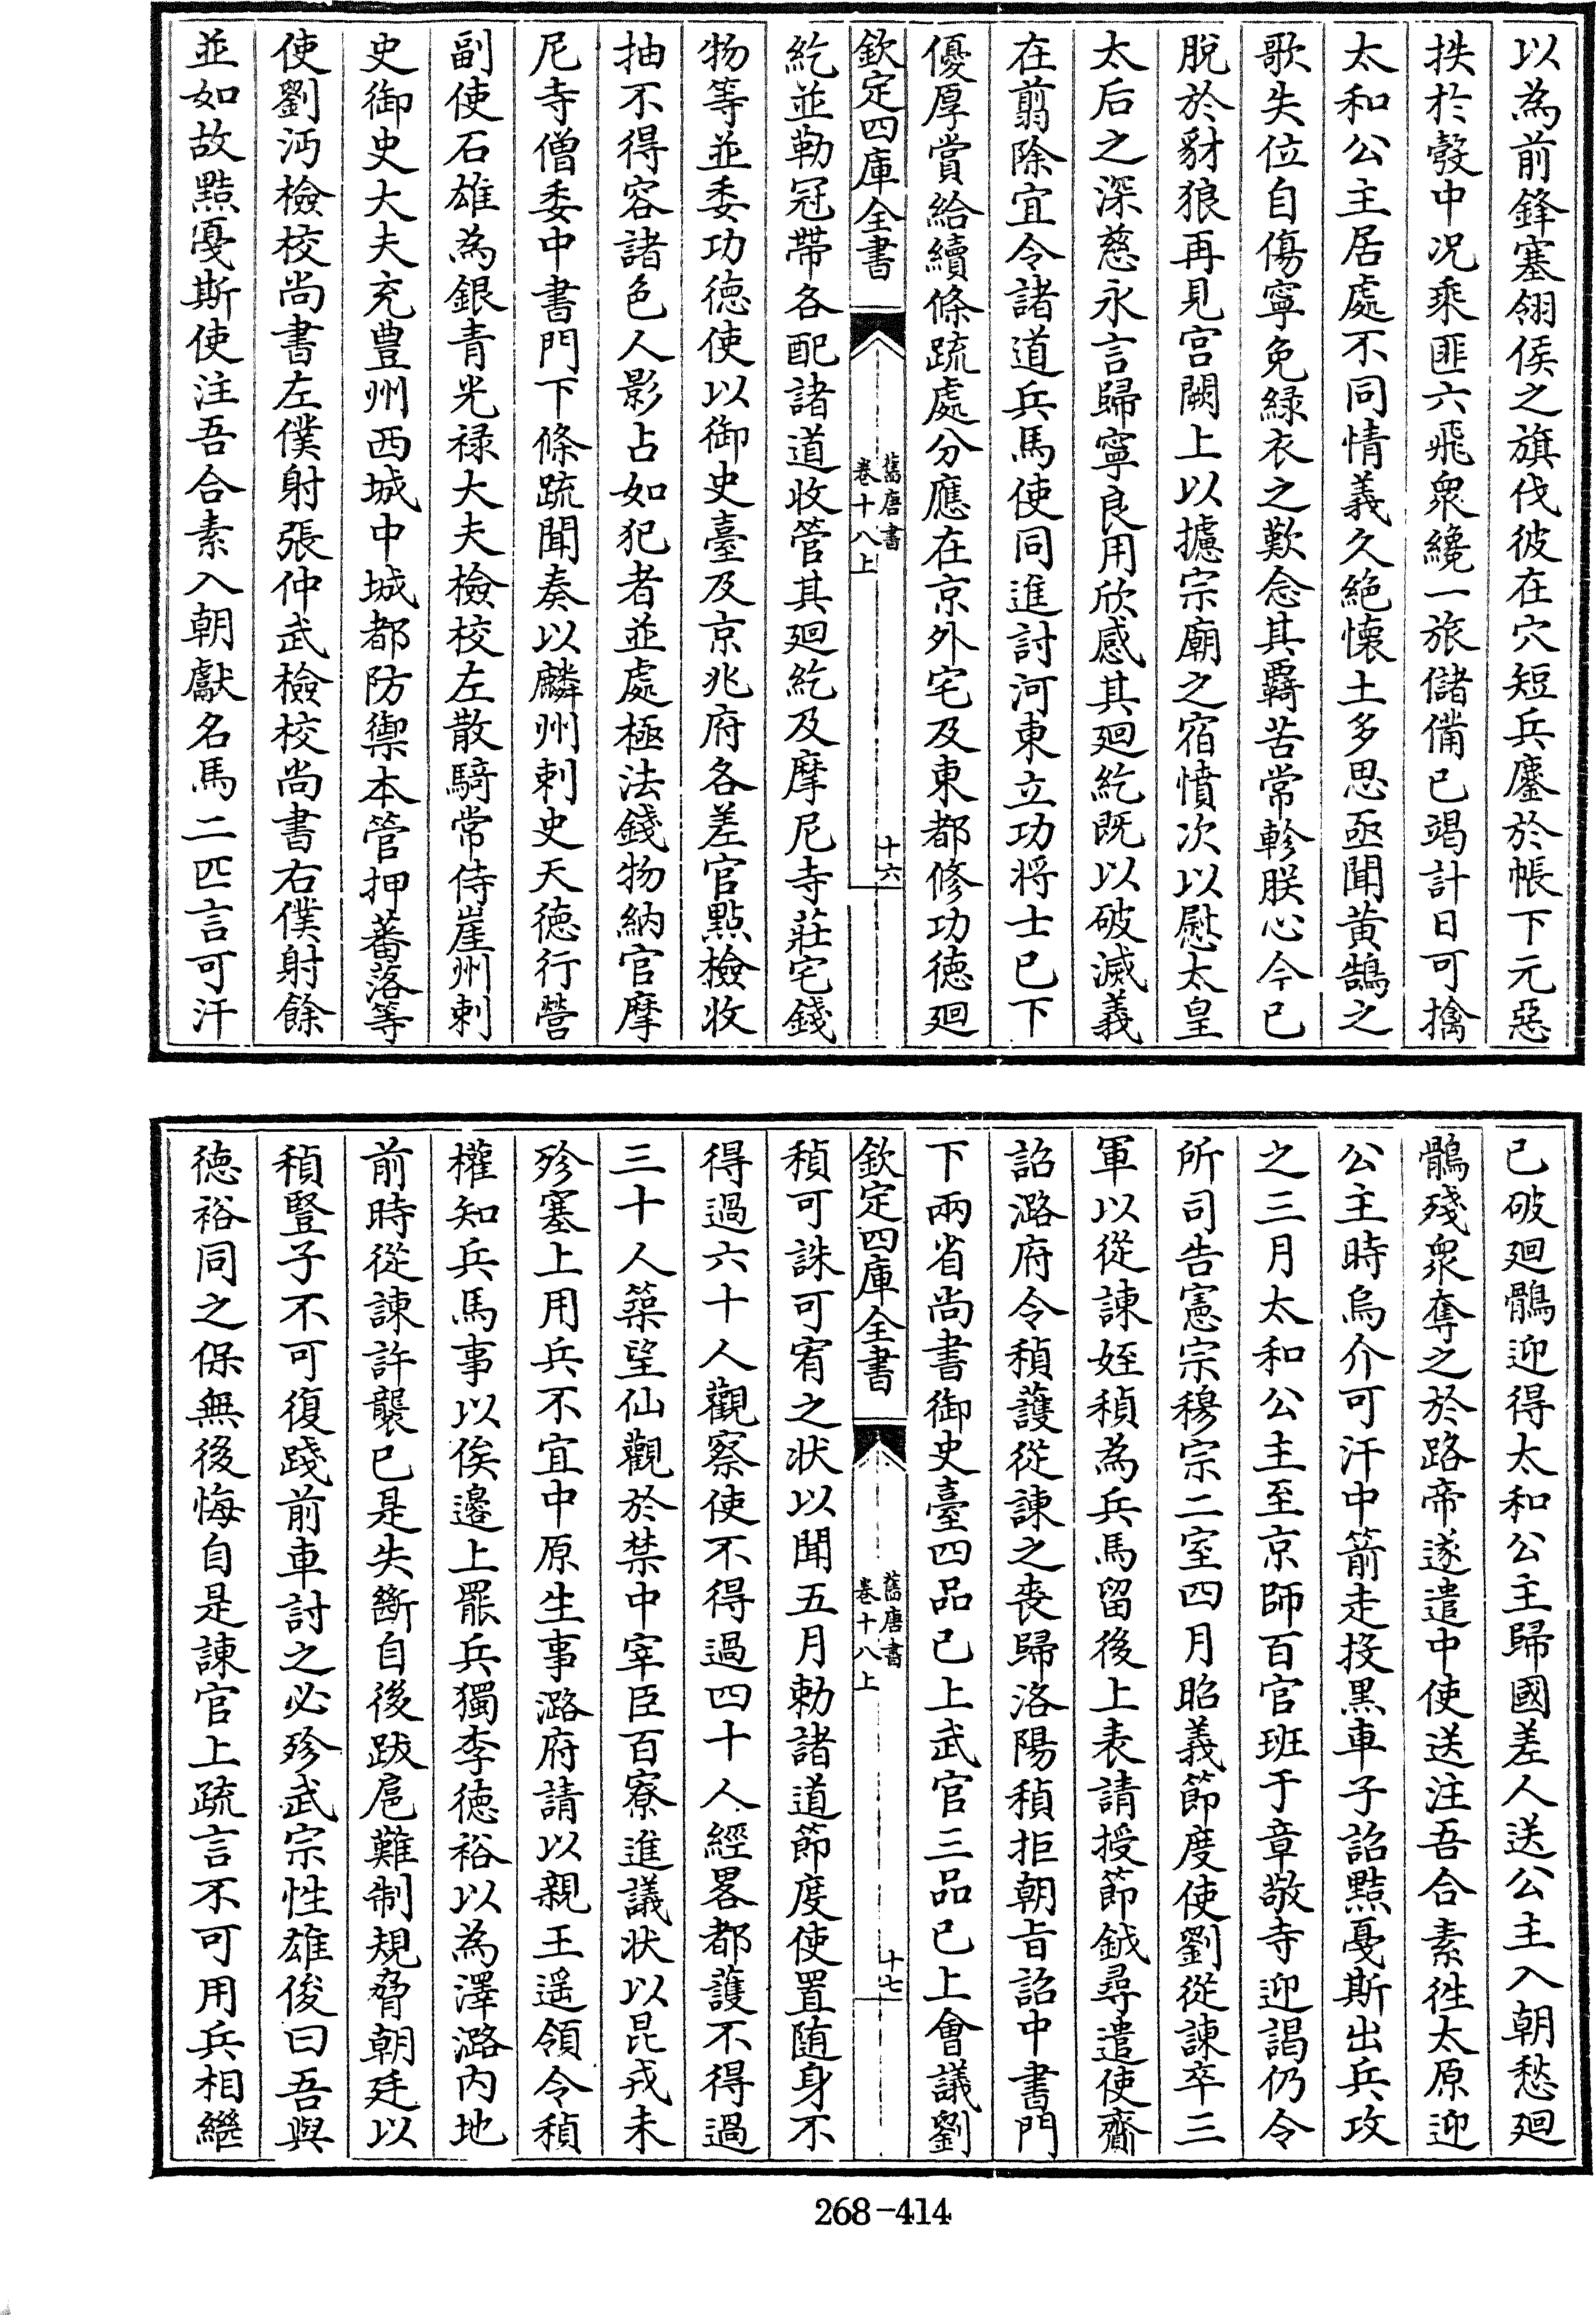 以為前鋒塞翎侯之旗伐彼在穴短兵鏖於帳下元惡
挾於彀中況乘匪六飛衆纔一旅儲備已竭計日可擒
太和公主居處不同情義久絶懐土多思亟聞黄鵠之
歌失位自傷寧免緑衣之歎念其羇苦常軫朕心今已
脫於豺狼再見宫闕上以攄宗廟之宿憤次以慰太皇
太后之深慈永言歸寧良用欣感其廻紇既以破滅義
在翦除宜令諸道兵馬使同進討河東立功將士已下
優厚賞給續條疏處分應在京外宅及東都修功徳廻
欽定四庫全書
舊唐書
卷十八上
十六
紇並勒冠帶各配諸道收管其廻紇及摩尼寺莊宅錢
物等並委功徳使以御史臺及京兆府各差官點檢收
抽不得容諸色人影占如犯者並處極法錢物納官摩
尼寺僧委中書門下條疏聞奏以麟州刺史天徳行營
副使石雄為銀青光禄大夫檢校左散騎常侍崖州刺
史御史大夫充豊州西城中城都防禦本管押蕃落等
使劉沔檢校尚書左僕射張仲武檢校尚書右僕射餘
並如故黠戛斯使注吾合素入朝獻名馬二匹言可汗
已破廻鶻迎得太和公主歸國差人送公主入朝愁廻
鶻殘衆奪之於路帝遂遣中使送注吾合素徃太原迎
公主時烏介可汗中箭走投黒車子詔黠戛斯出兵攻
之三月太和公主至京師百官班于章敬寺迎謁仍令
所司告憲宗穆宗二室四月昭義節度使劉從諫卒三
軍以從諫姪稹為兵馬留後上表請授節鉞尋遣使齎
詔潞府令稹護從諫之喪歸洛陽稹拒朝旨詔中書門
下兩省尚書御史臺四品已上武官三品已上會議劉
欽定四庫全書
舊唐書
卷十八上
十七
稹可誅可宥之状以聞五月勅諸道節度使置随身不
得過六十人觀察使不得過四十人經畧都護不得過
三十人築望仙觀於禁中宰臣百寮進議状以昆戎未
殄塞上用兵不宜中原生事潞府請以親王遥領令稹
權知兵馬事以俟邉上罷兵獨李徳裕以為澤潞内地
前時從諫許襲已是失斷自後跋扈難制規脅朝廷以
稹豎子不可復踐前車討之必殄武宗性雄俊曰吾與
徳裕同之保無後悔自是諫官上疏言不可用兵相繼
268-414